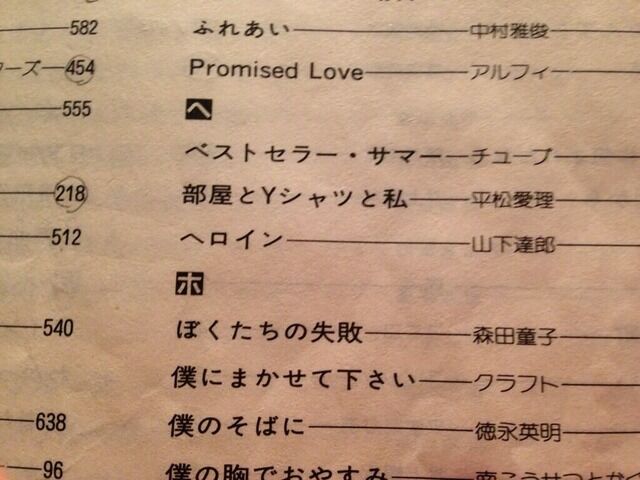 582 ふれあい 中村雅俊
ーズ 454 Promised Love アルフィー
555 ヘ
ベストセラー・サマー チューブ
218 部屋とYシャツと私 平松愛理
512 ヘロイン 山下達郎
ホ
540 ぼくたちの失敗 森田童子
僕にまかせて下さい クラフト
638 僕のそばに 徳永英明
96 僕の胸でおやすみ 南こうせつとかぐ